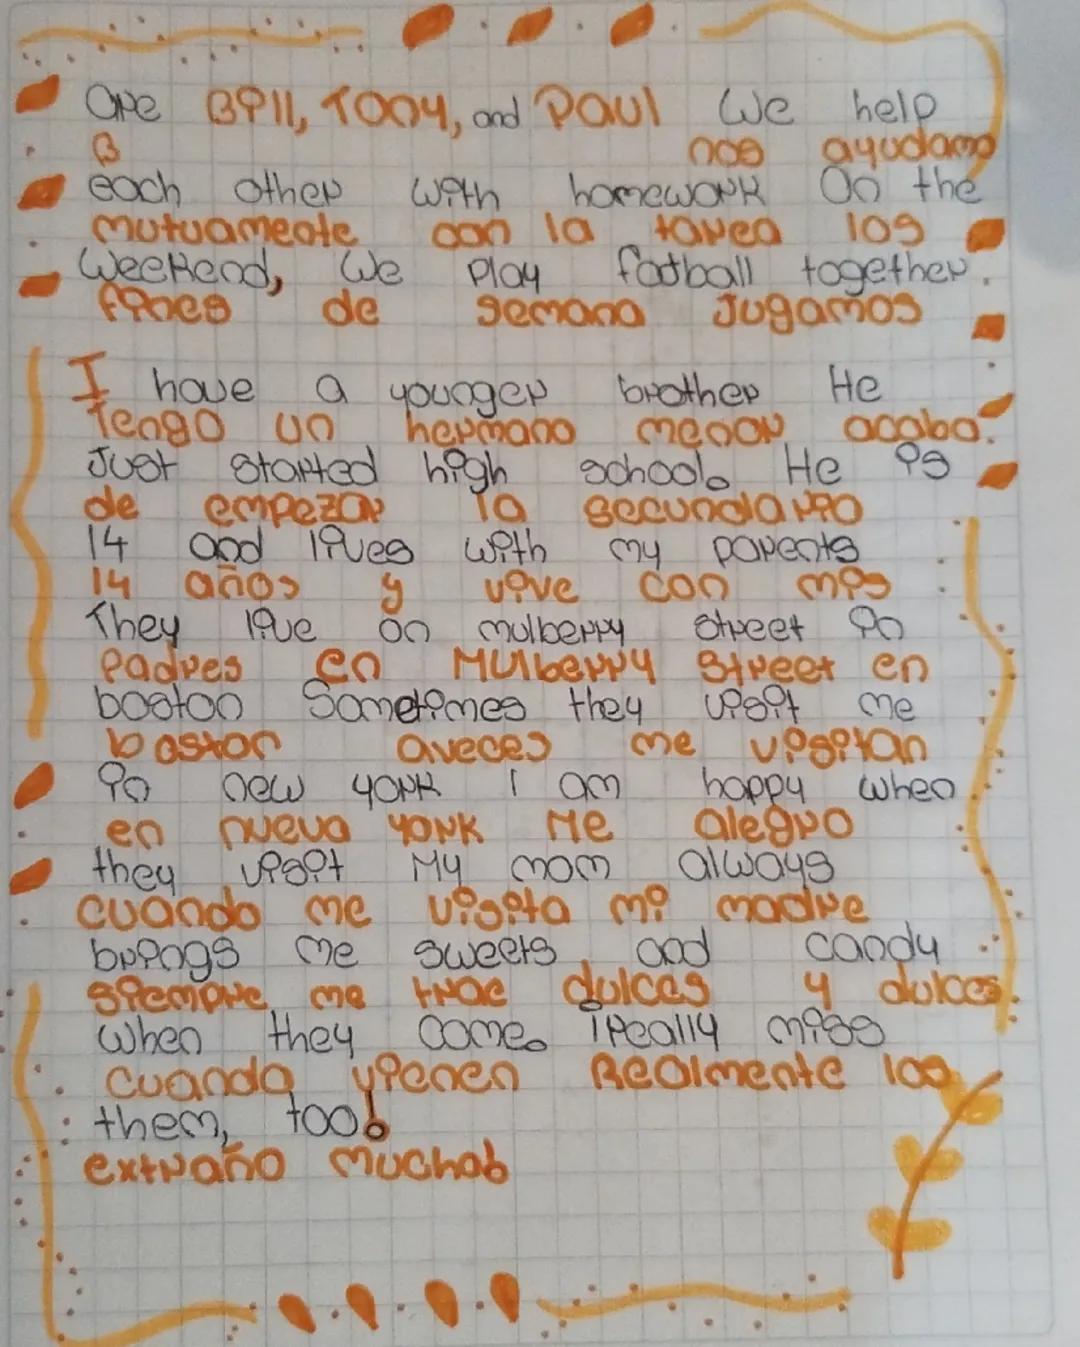 are Bill, Tony, and Paul We help
B nos ayudamo
each other with homework On the
mutuamente con la tarea los
Weekend, We Play football together.
fines de semana Jugamos
I have a younger brother He
Tengo un hermano menor acaba.
Just started high school. He is
de empezar la secundario
14 and lives with my parents
14 años y vive con mis
They live on mulberry street in
Padres en Mulberry Street en
boston Sometimes they visit me
boston aveces me visitan
in new york I am happy when
en nueva york Me alegro
they visit My mom always
cuando me visita mi madre
brings me sweets and candy
siempre me trae dulces y dulces.
when they come. i Really miss
cuando vienen Realmente los
them, too!
extraño mucho!